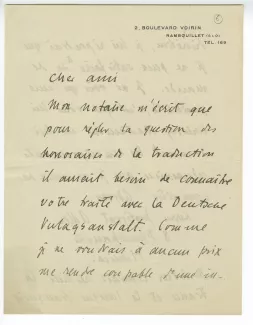 2, BOULEVARD VOIRIN
RAMBOUILLET (S.&O)
TEL. 186
Cher ami
Mon notaire m'écrit que
pour régler la question des
honoraires de la traduction
il aurait besoin de connaître
votre traité avec la Deutsche
Verlagsanstalt. Comme
je ne voudrais à aucun prix
me rendre coupable d'une in-